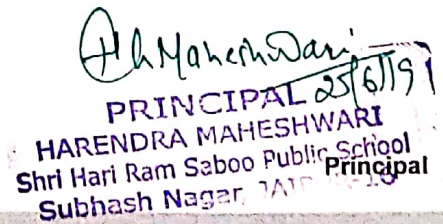 HhMaheshwari
25/6/19
PRINCIPAL
HARENDRA MAHESHWARI
Shri Hari Ram Saboo Public School
Principal
Subhash Nagar,